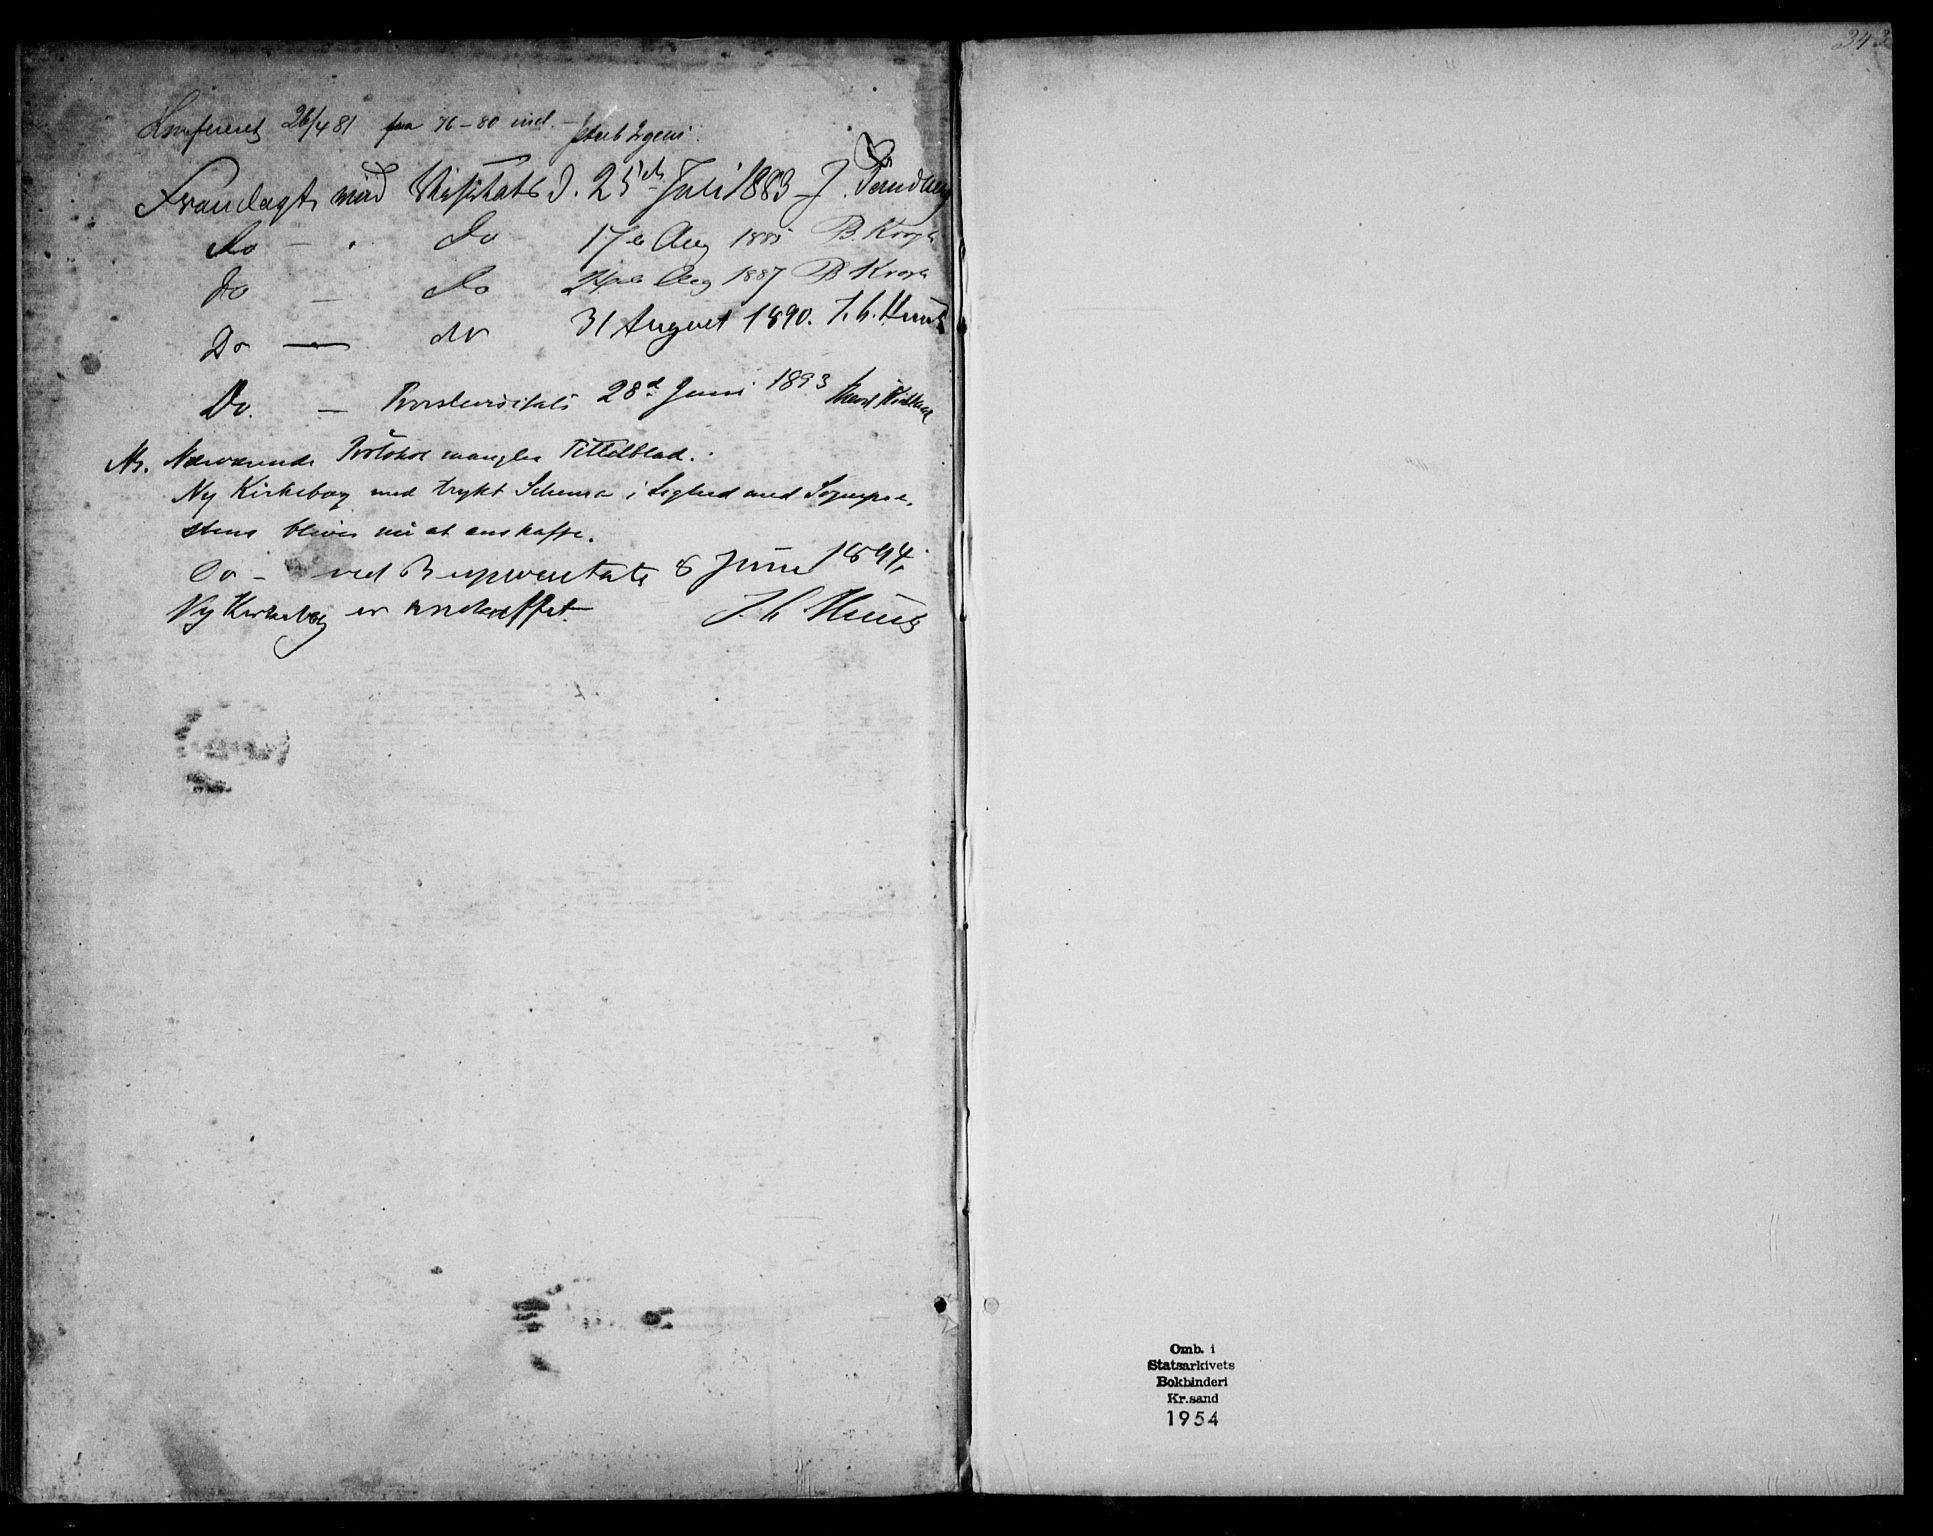 Konfereret 26/4 81 fra 76-80 incl. - Jakob
Fremlagt ved Visitats d. 25de Juli 1883 J. Tandberg
Do - . do 17de Aug 1885 B. Krogh
Do - do 24de Aug 1887 B Krogh
Do — do 31 August 1890. J. C. Heuch
Do. - Provstevisitats 28d Juni 1893
NB. Nærværende Protokol mangler Tittelblad.
Ny Kirkebog med trykt Schema i Lighed med Sognepræ-
stens bliver nu at anskaffe.
Do - ved Bispevisitats 8 Juni 1894.
Ny Kirkebog er anskaffet. J. C. Heuch
343
Omb. i
Statsarkivets
Bokbinderi
Kr.sand
1954